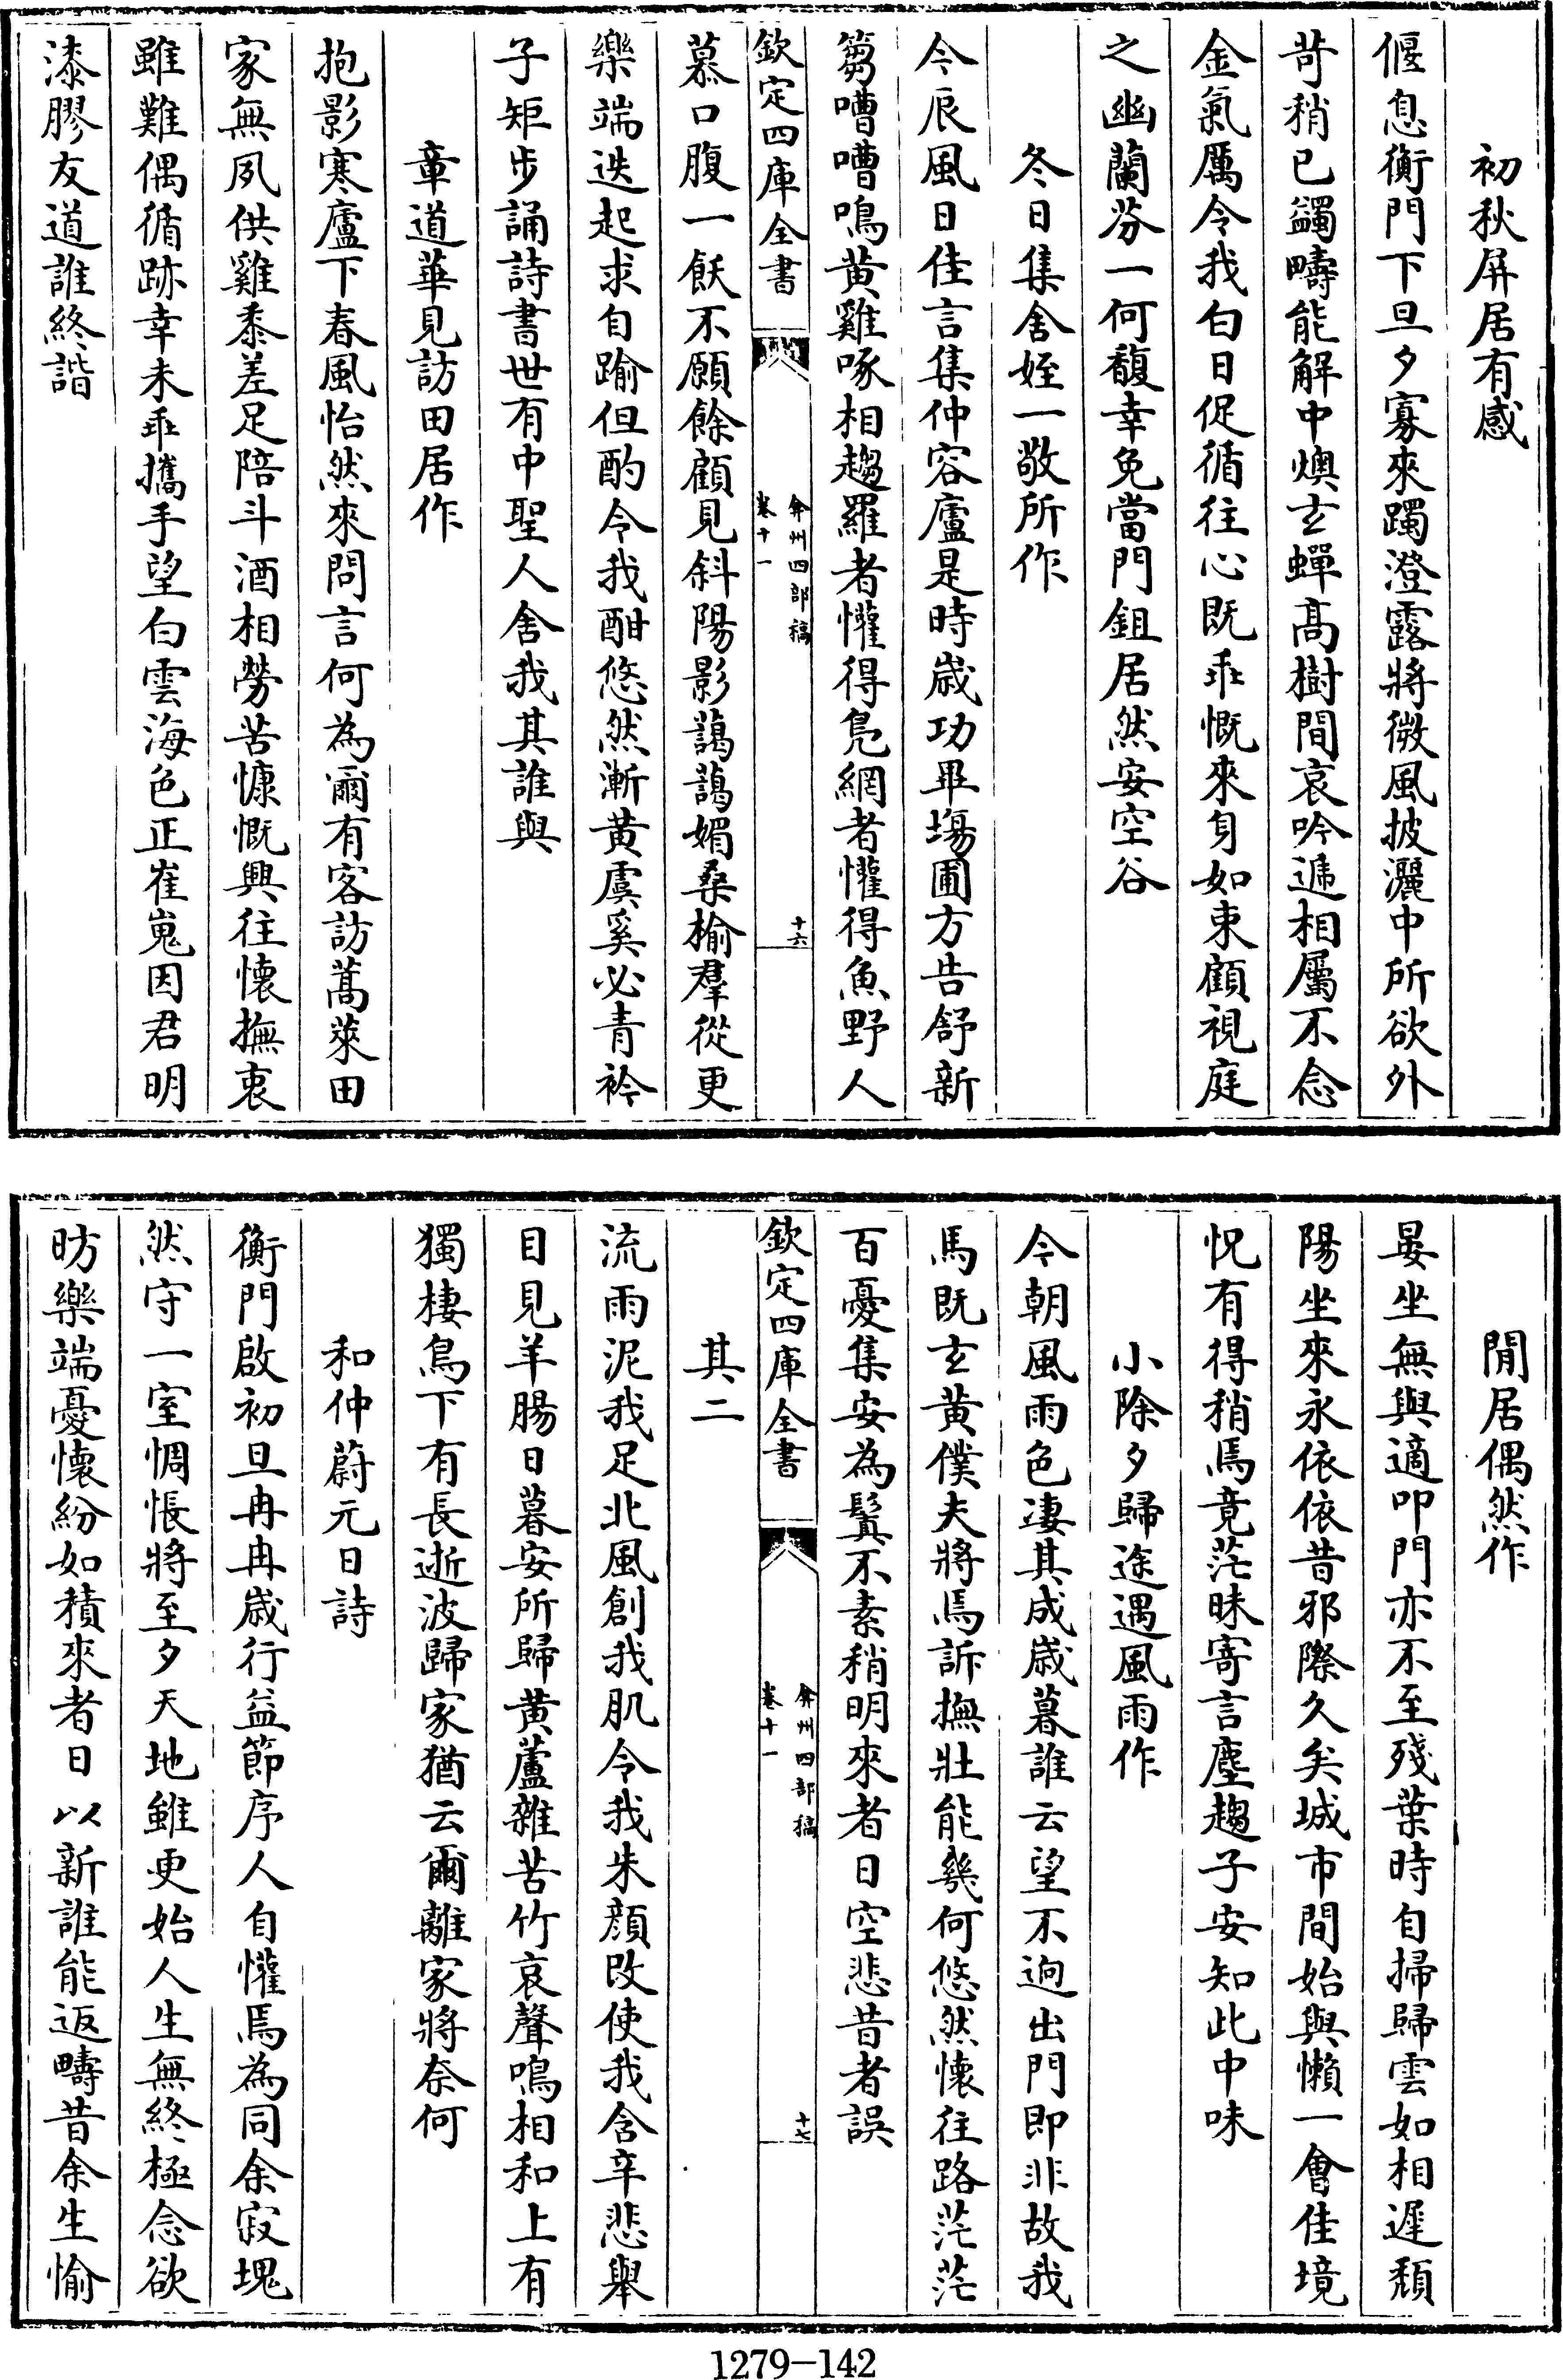 初秋屏居有感
偃息衡門下旦夕寡來躅澄露將微風披灑中所欲外
苛稍已蠲疇能解中燠玄蟬高樹間哀吟遞相屬不念
金氣厲令我白日促循往心既乖慨來身如束顧視庭
之幽蘭芬一何馥幸免當門鉏居然安空谷
冬日集舍姪一敬所作
今辰風日佳言集仲容廬是時歲功畢塲圃方告舒新
芻嘈嘈鳴黄雞啄相趨羅者懽得鳬網者懽得魚野人
欽定四庫全書
弇州四部稿
卷十一
十六
慕口腹一飫不願餘顧見斜陽影藹藹媚桑榆羣從更
樂端迭起求自踰但酌令我酣悠然漸黄虞奚必青衿
子矩步誦詩書世有中聖人舍我其誰與
章道華見訪田居作
抱影寒廬下春風怡然來問言何為爾有客訪蒿萊田
家無夙供雞黍差足陪斗酒相勞苦慷慨興往懷撫衷
雖難偶循跡幸未乖攜手望白雲海色正崔嵬因君明
漆膠友道誰終諧
閒居偶然作
晏坐無與適叩門亦不至殘葉時自掃歸雲如相遲頹
陽坐來永依依昔邪際久矣城市間始與懶一會佳境
怳有得稍焉竟茫昧寄言塵趨子安知此中味
小除夕歸途遇風雨作
今朝風雨色凄其成歲暮誰云望不逈出門即非故我
馬既玄黄僕夫將焉訴撫壯能幾何悠然懷往路茫茫
百憂集安為鬒不素稍明來者日空悲昔者誤
欽定四庫全書
弇州四部稿
卷十一
十七
其二
流雨泥我足北風創我肌令我朱顔改使我含辛悲舉
目見羊腸日暮安所歸黄蘆雜苦竹哀聲鳴相和上有
獨棲鳥下有長逝波歸家猶云爾離家將奈何
和仲蔚元日詩
衡門啟初旦冉冉歲行益節序人自懽焉為同余寂塊
然守一室惆悵將至夕天地雖更始人生無終極念欲
昉樂端憂懷紛如積來者日以新誰能返疇昔余生愉
1279-142